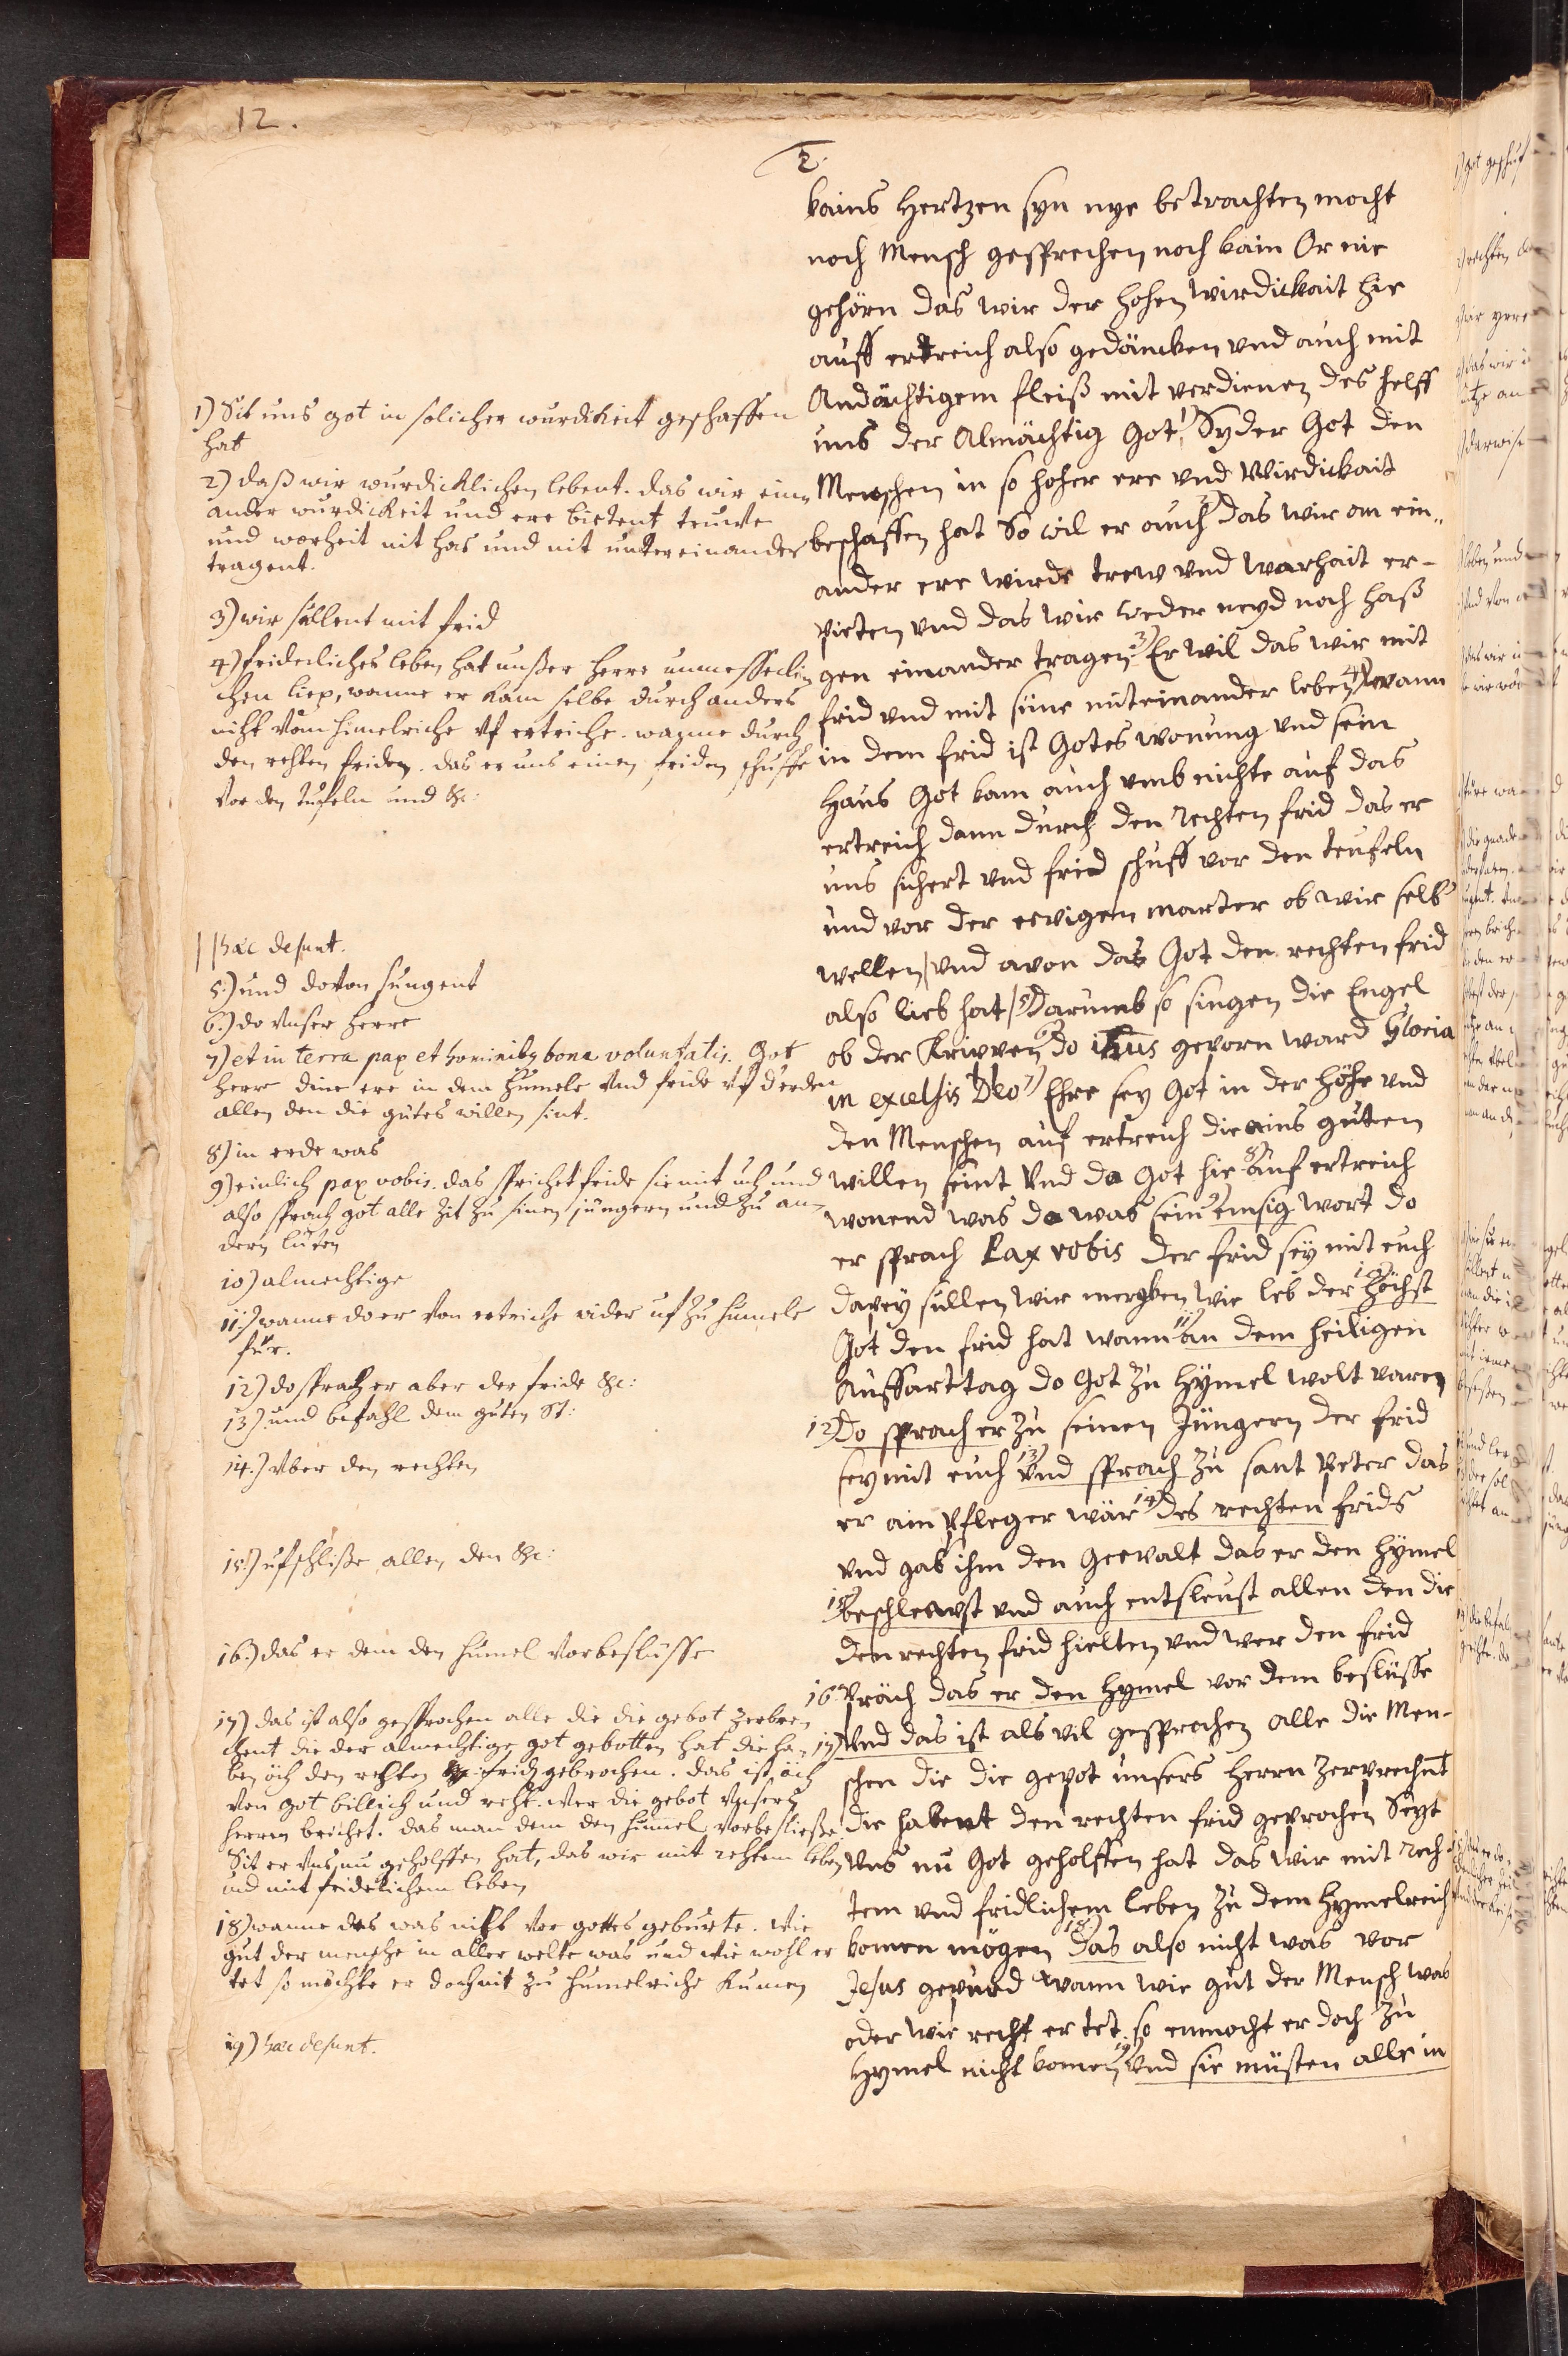 12.
2.
kains Hertzen syn nye betrachten mocht
noch Mensch gesprechen noch kain Or nie
gehörn das wir der hohen wirdickait hie
auff ertreich also gedäncken vnd auch mit
Andächtigem fleiß mit verdienen des helff
uns der Almächtig Got 1) Syder Got den
Menschen in so hoher ere vnd Wirdickait
beschaffen hat So wil er auch 2) das wir an ein„
ander ere wirde trew vnd warhait er-
pieten vnd das wir weder neyd noch haß
gen einander tragen 3) Er wil das wir mit
frid vnd mit süne miteinander leben 4) wann
in dem frid ist Gotes wonung vnd sein
Haus Got kam auch umb nichte auf das
ertreich dann durch den Rechten frid das er
uns sichert vnd frid schuff vor den teufeln
und vor der ewigen marter ob wir selb
wellen | vnd avon das Got den rechten frid
also lieb hat | 5) Darumb so singen die Engel
ob der Krippen 6) do ihus geporn ward Gloria
in excelsis Deo 7) Ehre sey Got in der höhe vnd
den Menschen auf ertreich die ains guten
willen seint Vnd da Got hie 8) auf ertreich
wonend was da was sein 9) emsig wort do
er sprach Pax vobis der frid sey mit euch
dapey sullen wir mercken wie leb der 10) höchst
Got den frid hat wann 11) an dem heiligen
Auffarttag do Got zu Hymel wolt varen
12) Do sprach er zu seinen Jüngern der frid
sey mit euch 13) vnd sprach zu sant Peter das
er ain Pfleger wär 14) des rechten frids
vnd gab ihm den Gewalt das er den Hymel
15) beschleust vnd auch entsleust allen den die
den rechten frid hielten vnd wer den frid
16) präch das er den Hymel vor dem beslüsse
17) Vnd das ist als vil gesprochen alle die Men-
schen die die gepot unsers Herrn zerprechnt
die habent den rechten frid geprochen Seyt
Vns nu Got geholffen hat das wir mit Rech
tem vnd fridlichem leben zu dem Hymelreich
komen mögen 18) Das also nicht was vor
Jesus gepurd wann wie gut der Mensch was
oder wie recht er tet so enmocht er doch zu
Hymel nicht komen 19) vnd sie müsten alle in
1) Sit uns got in solicher wurdikeit geschaffen
hat
2) daß wir wurdicklichen lebent. das wir ein
ander wurdickeit und ere bietent truwe
und worheit nit has und nit untereinander
tragent.
3) wir süllent mit frid
4) fridenliches leben hat unßer herre unmesseclin
chen liep, wanne er kam selbe durch anders
niht vom himelriche vf ertriche. wanne durch
den rehten friden. das er uns einen friden schuffe
vor den tufeln und &c:
|| hæc desunt.
5.) und dovon sungent
6.) do vnser herre
7) et in terra pax et hominibꝫ bona voluntatis. Got
herr dine ere in dem humele vnd fride vf d'erden
allen den die gutes willen sint.
8) in erde was
9) einlich pax vobis. das sprichet fride sie mit uch und
also sprach got alle zit zu sinen jungern und zu an-
dern luten
10) almechtige
11) wanne do er von ertriche wider uf zu humele
fur.
12) do sprach er aber der fride &c:
13.) und befahl dem guten St:
14.) vber den rechten
15.) ufschlisse allen den &c:
16.) das er dem den humel vorbeslusse
17) das ist also gesprochen alle die die gebot zerbre
chent die der almechtige got gebotten hat die ha-
ben och den rehten frid gebrochen. das ist och
von got billich und reht. Wer die gebot vnsers
herren brichet. das man dem den humel vorbesliesse.
Sit er vns nu geholffen hat, das wir mit rehtem leben
und mit fridelichem leben
18) wanne des was niht vor gottes geburte. wie
gut der mensche in aller welte was und wie wohl er
tet so mochte er doch nit zu humelriche kumen
19) hæc desunt.